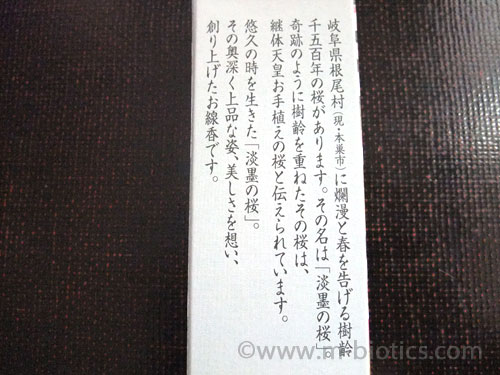 岐阜県根尾村(現・本巣市)に爛漫と春を告げる樹齢
千五百年の桜があります。その名は「淡墨の桜」。
奇跡のように樹齢を重ねたその桜は、
継体天皇お手植えの桜と伝えられています。
悠久の時を生きた「淡墨の桜」。
その奥深く上品な姿、美しさを想い、
創り上げたお線香です。
©www.mrbiotics.com